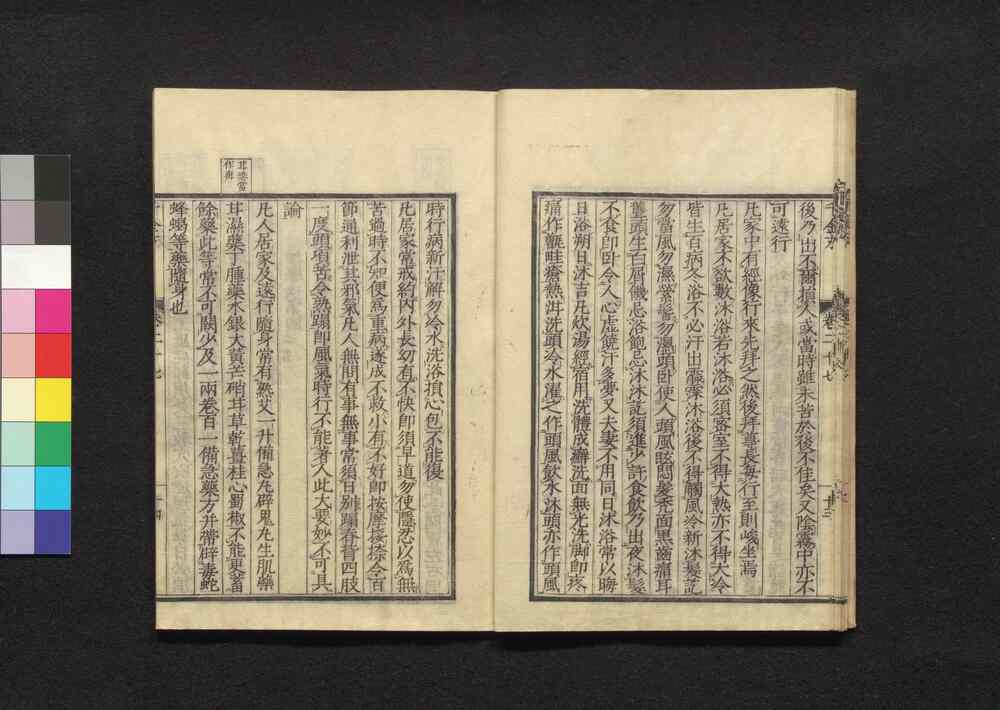 後乃出不爾損人或當時雖未皆於後不住矣又陰霧中亦不
可遠行
凡家中有經像行來先拜之然後拜尊長每行至則峻坐焉
凡居家不欲數沐浴若沐浴必須密室不得大熱亦不得大冷
皆生百病冬浴不必汗出霡霂沐浴後不得觸風冷新沐髮訖
勿當風勿濕縈髻勿濕頭卧使人頭風眩悶髮禿面黑齒痛耳
聾頭生白屑饑忌浴飽忌沐沐訖須進少許食飲乃出夜沐髮
不食即卧令人心虛饒汗多夢又夫妻不用同日沐浴常以晦
日浴朔日沐吉凡炊湯經宿用洗體成癬洗面無光洗脚即疼
痛作甑畦瘡熱泔洗頭冷水濯之作頭風飲水沐頭亦作頭風
時行病新汗解勿冷水洗浴損心包不能復
凡居家常戒約內外長幼有不快即須早道勿使隱忍以爲無
苦過時不知便爲重病遂成不救小有不好即按摩挼捺令百
節通利泄其邪氣凡人無問有事無事常須日別蹋脊背四肢
一度頭項苦令熟蹋即風氣時行不能著人此大要妙不可具
論
凡人居家及遠行隨身常有熟艾一升備急丸辟鬼丸生肌藥
甘濕藥丁腫藥水銀大黄芒硝甘草乾薑桂心蜀椒不能更蓄
餘藥此等常不可闕少及一兩卷百一備急藥方并帶辟毒蛇
蜂蝎等藥隨身也
卷二十七
十三